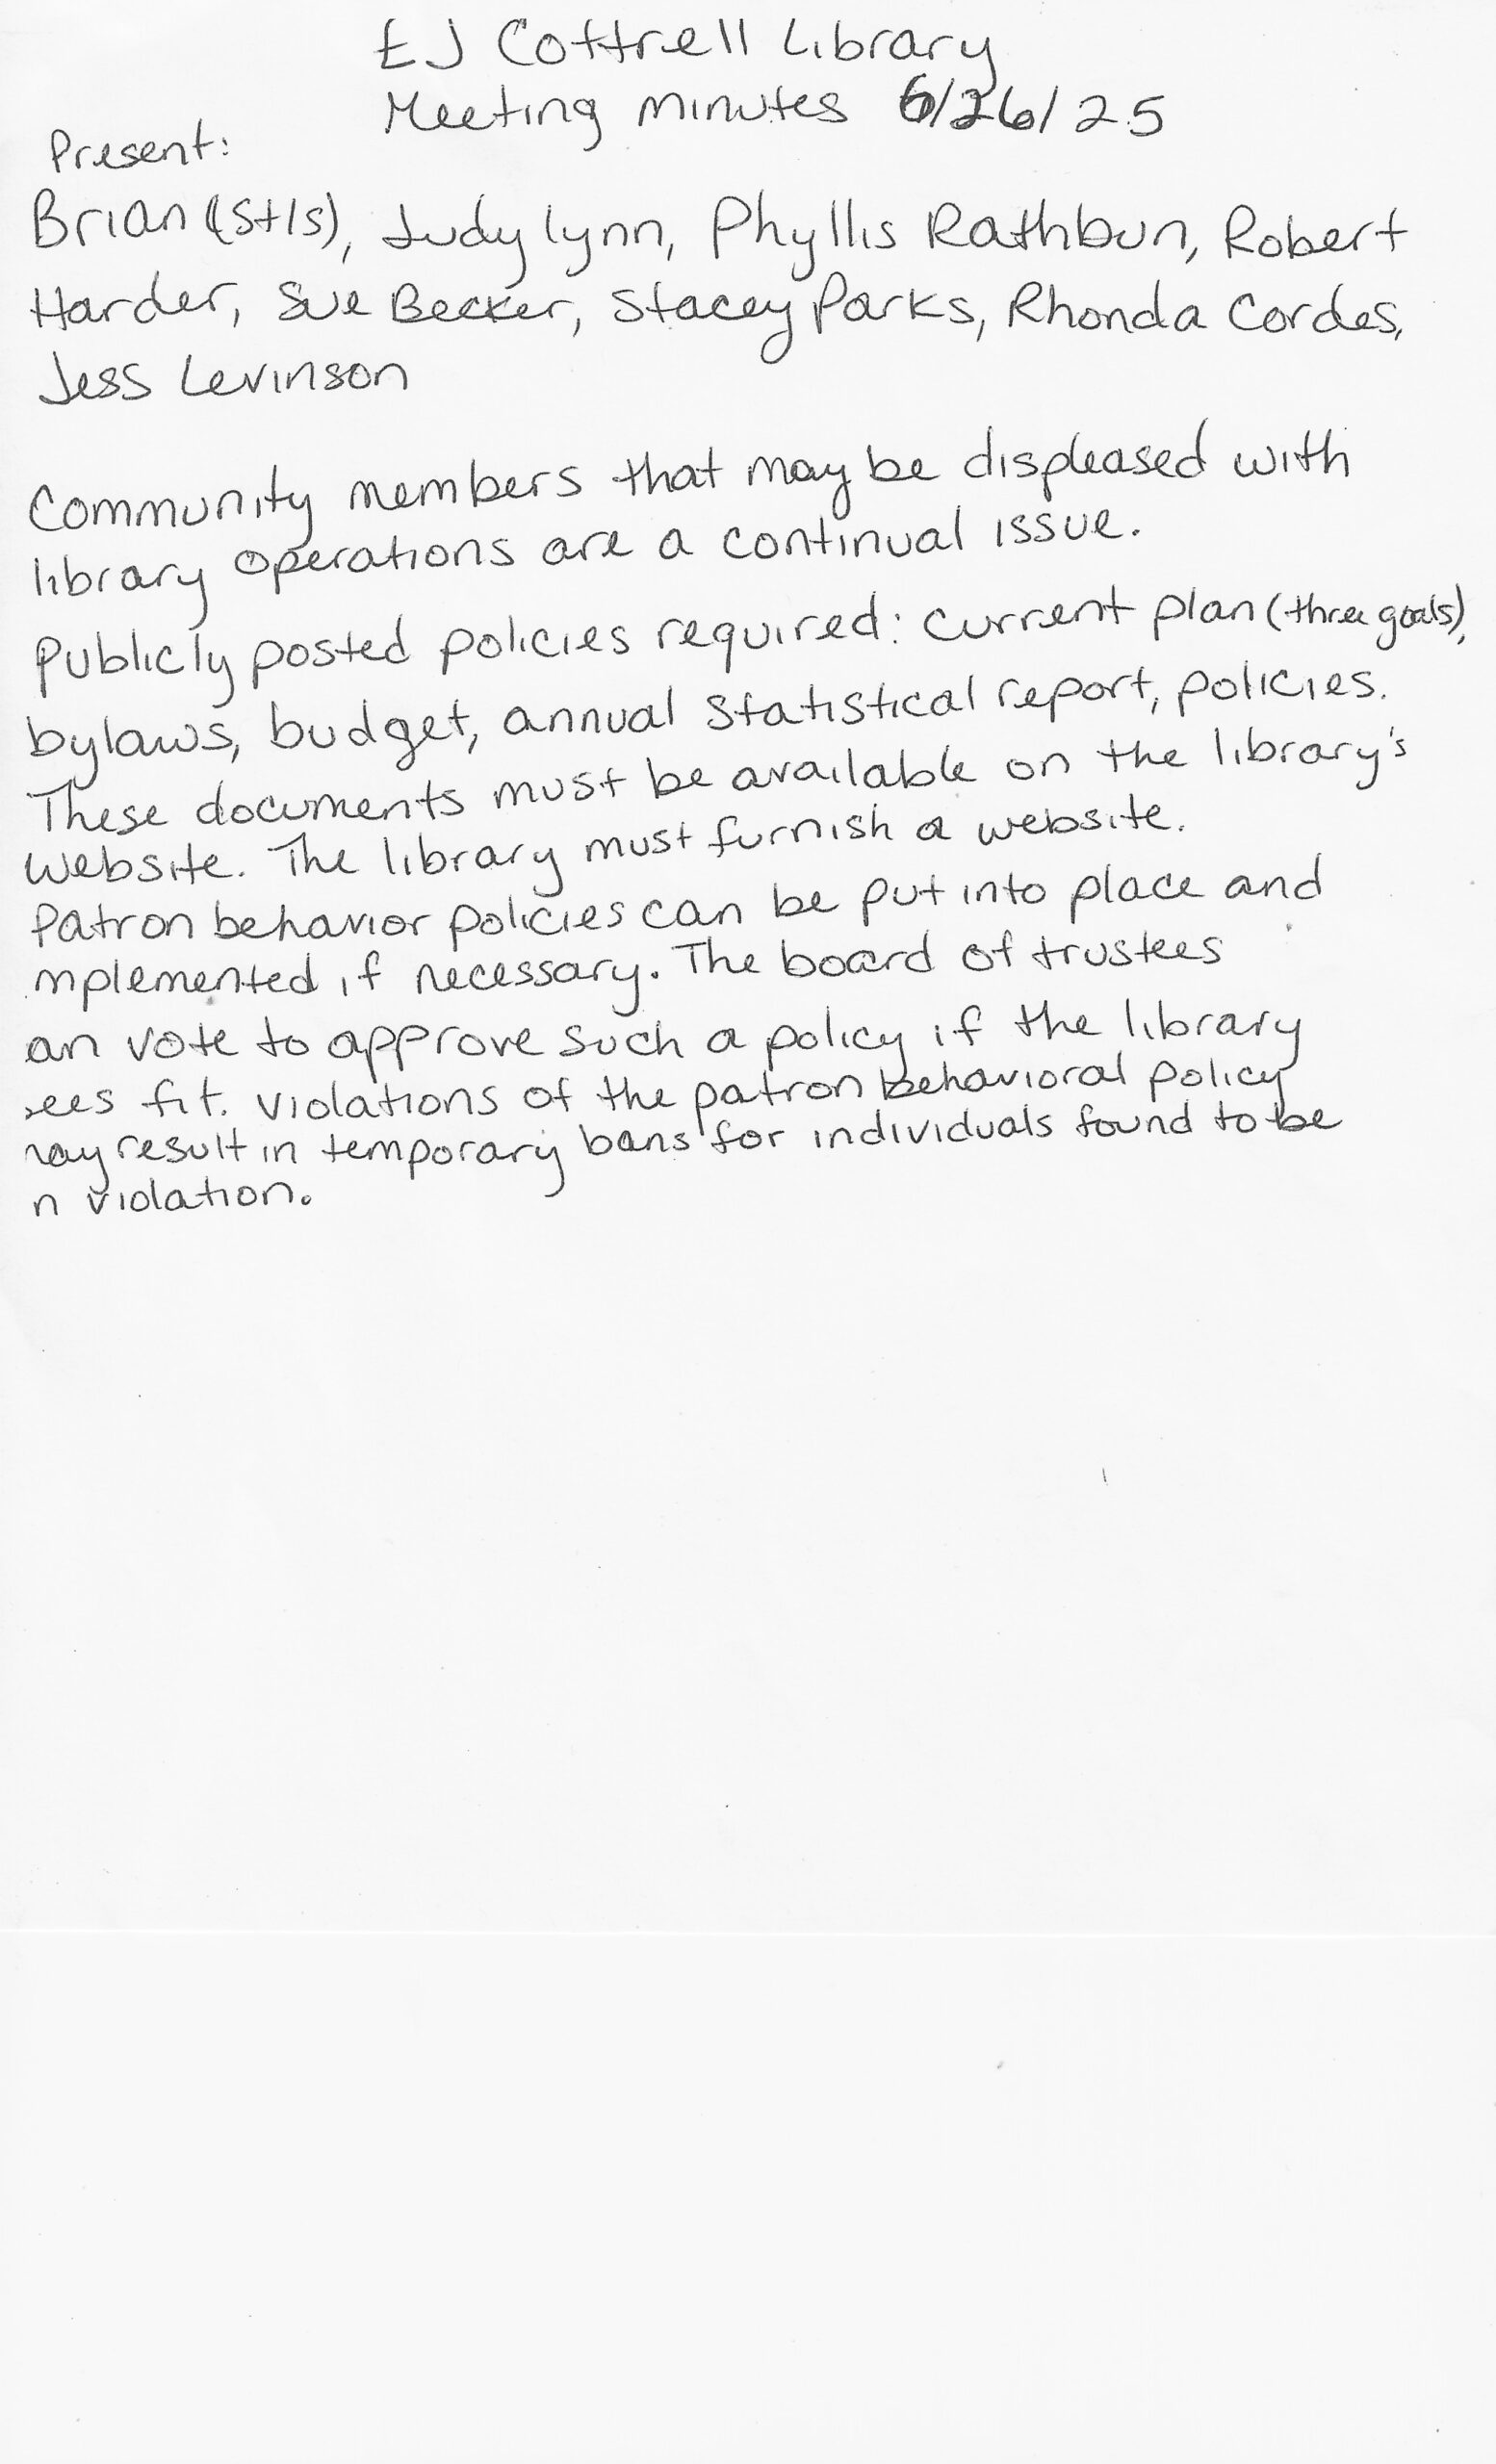 EJ Cottrell Library
Meeting minutes 6/26/25
Present:
Brian (Stls), Judy Lynn, Phyllis Rathbun, Robert
Harder, Sue Becker, Stacey Parks, Rhonda Cordes,
Jess Levinson
Community members that may be displeased with
library operations are a continual issue.
Publicly posted policies required: current plan (three goals),
bylaws, budget, annual statistical report, policies.
These documents must be available on the library's
website. The library must furnish a website.
Patron behavior policies can be put into place and
mplemented if necessary. The board of trustees
an vote to approve such a policy if the library
ees fit. Violations of the patron behavioral policy
may result in temporary bans for individuals found to be
n violation.